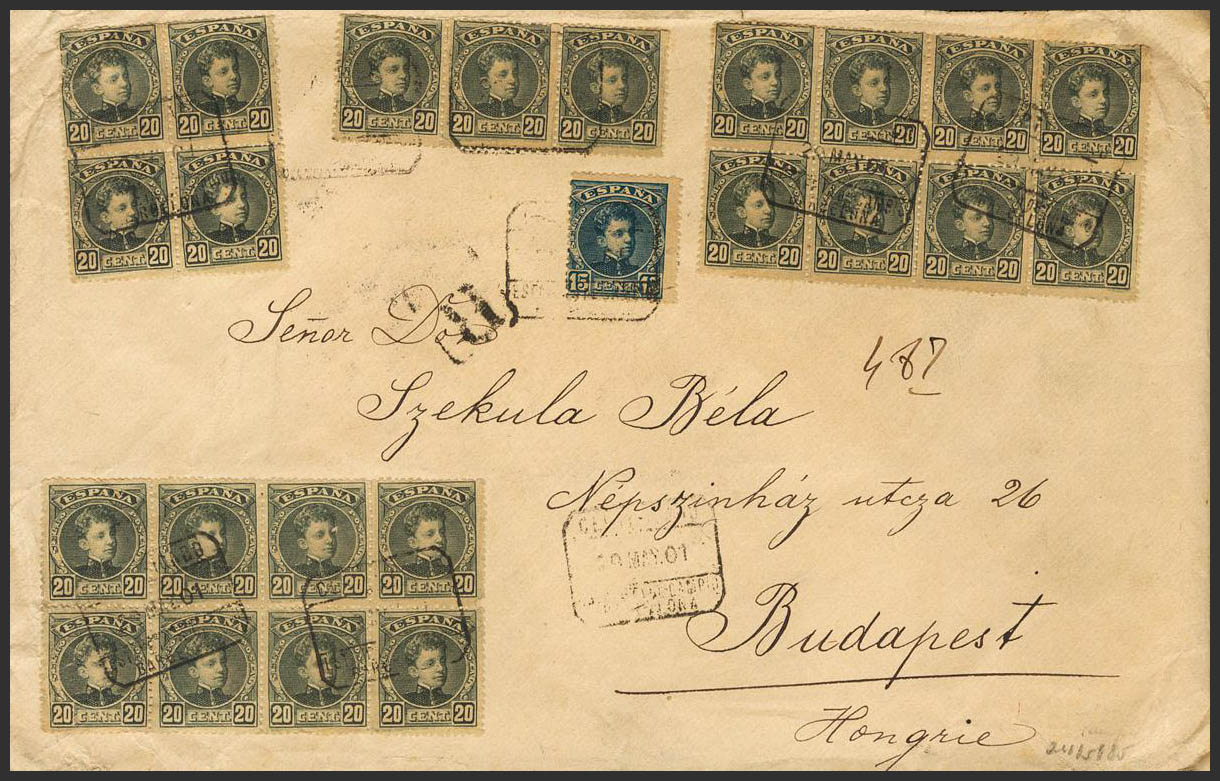 ESPAÑA ESPAÑA ESPAÑA ESPAÑA ESPAÑA ESPAÑA ESPAÑA ESPAÑA ESPAÑA
20 CENT. 20 20 CENT. 20 20 CENT. 20 20 CENT. 20 20 CENT. 20 20 CENT. 20 20 CENT. 20 20 CENT. 20 20 CENT. 20
ESPAÑA ESPAÑA ESPAÑA ESPAÑA ESPAÑA ESPAÑA
20 CENT. 20 20 CENT. 20 20 CENT. 20 20 CENT. 20 20 CENT. 20 20 CENT. 20
ESPAÑA
15 CENT.
Señor Don
487
Szekula Béla
Népszinház utcza 26
ESPAÑA ESPAÑA ESPAÑA ESPAÑA
20 CENT. 20 20 CENT. 20 20 CENT. 20 20 CENT. 20
MAY.01
Budapest
ESPAÑA ESPAÑA ESPAÑA ESPAÑA
20 CENT. 20 20 CENT. 20 20 CENT. 20 20 CENT. 20
Hongrie